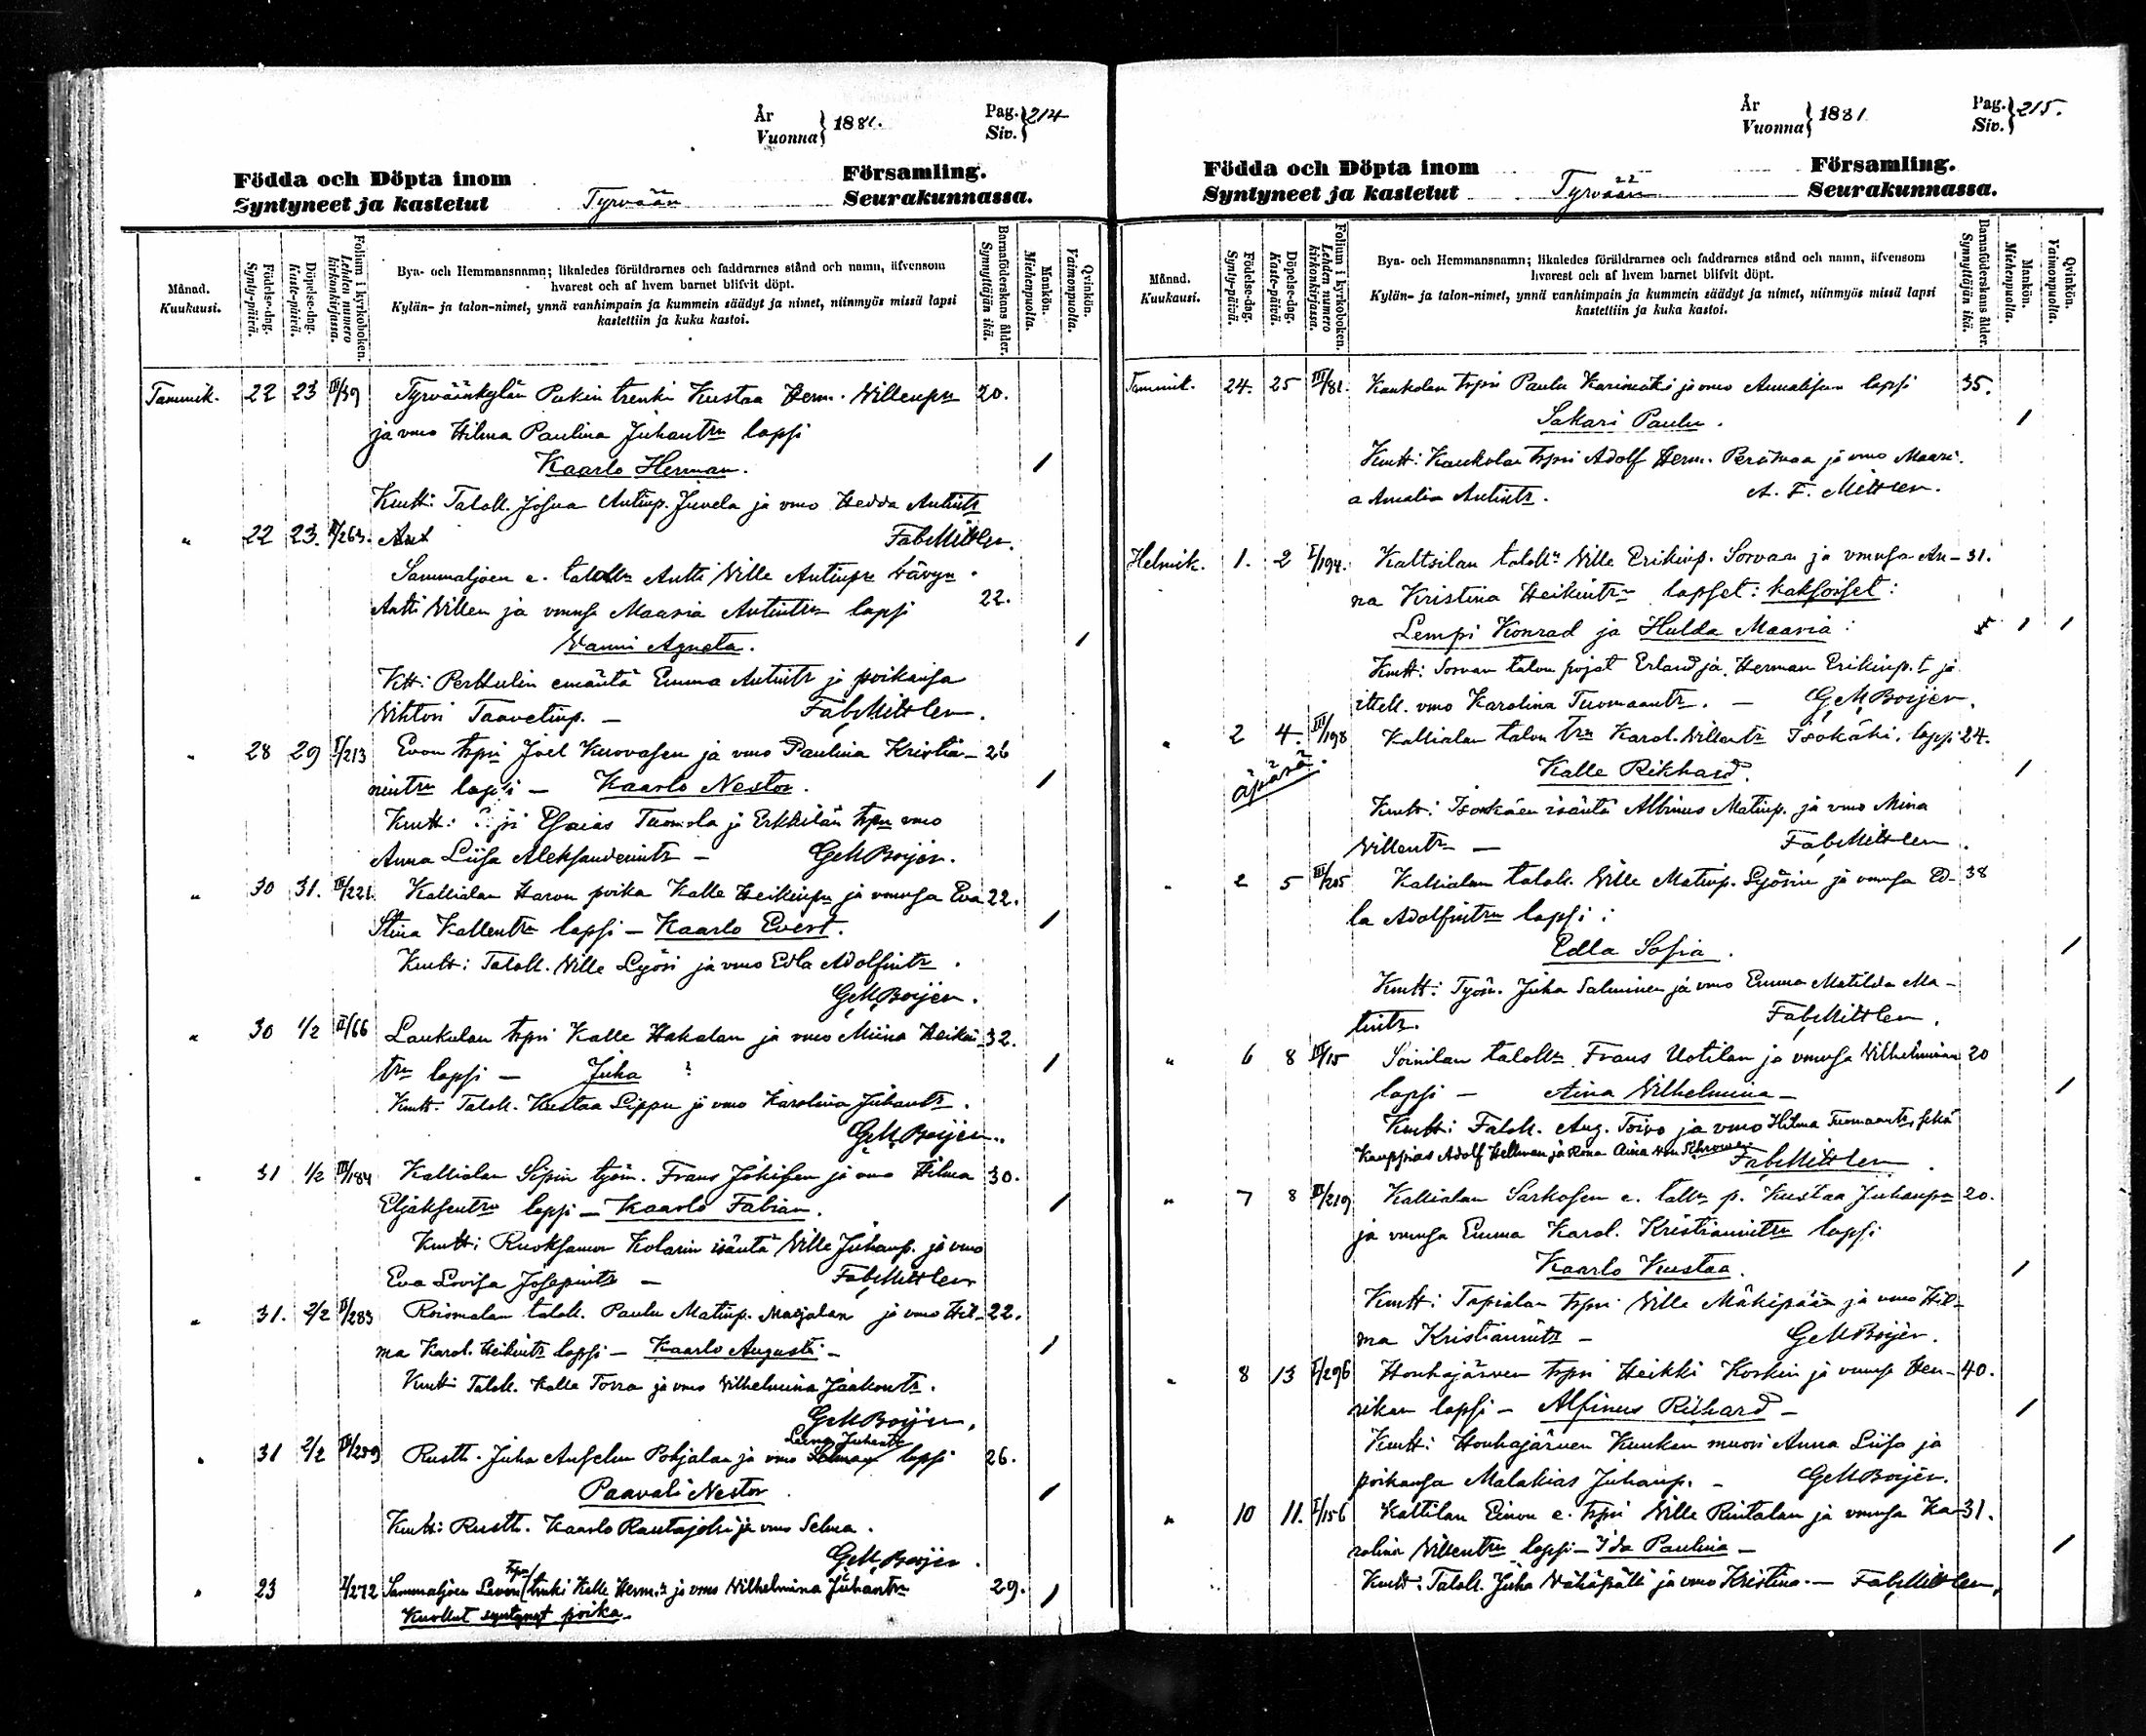 År
Vuonna } 1881.
Pag.
Siv. } 214
Födda och Döpta inom Församling.
Syntyneet ja kastetut Tyrvään Seurakunnassa.
Månad.
Kuukausi.
Födelse-dag.
Synty-päivä.
Döpelse-dag.
Kaste-päivä.
Folium i kyrkoboken.
Lehden numero kirkonkirjassa.
Bya- och Hemmansnamn; likaledes föräldrarnes och faddrarnes stånd och namn, äfvensom
hvarest och af hvem barnet blifvit döpt.
Kylän- ja talon-nimet, ynnä vanhimpain ja kummein säädyt ja nimet, niinmyös missä lapsi
kastettiin ja kuka kastoi.
Barnaföderskans ålder.
Synnyttäjän ikä.
Mankön.
Miehenpuolta.
Qvinkön.
Vaimonpuolta.
Tammik. 22 23 III/39 Tyrväänkylän Pukin trenki Kustaa Herm. Willenpn 20.
ja vmo Hilma Paulina Juhantrn lapsi
Kaarlo Herman. /
Kmtt: Talok. Josua Antinp. Juvela ja vmo Hedda Antintr
" 22 23. II/263. FabMittler.
Sammaljoen e. talolln Antti Wille Antinpn vävyn
Antti Willen ja vmnsa Maaria Antintrn lapsi 22.
Wanni Agneta. /
Ktt: Perttulin emäntä Emma Antintr ja poikansa
Wihtori Taavetinp. — FabMittler.
" 28 29 I/213 Evon trpri Joel Kuovasen ja vmo Paulina Kristia- 26
nintrn lapsi — Kaarlo Nestor. /
Kmtt: Esaias Tuomola ja Erkkilän trpn vmo
Anna Liisa Aleksanderintr — GMBoijer.
" 30 31. III/221. Kallialan Haron poika Kalle Heikinpn ja vmnsa Eva 22.
Stina Kallentrn lapsi — Kaarlo Evert. /
Kmtt: Talolk. Wille Lyösi ja vmo Edla Adolfintr.
GMBoijer.
" 30 1/2 II/66 Laukulan trpri Kalle Hakalan ja vmo Miina Heikin- 32.
trn lapsi — Juha /
Kmtt. Talolk. Kustaa Lippu ja vmo Karolina Juhantr.
GMBoijer.
" 31 1/2 III/184 Kallialan Sipin työm. Frans Jokisen ja vmo Hilma 30.
Eljaksentrn lapsi — Kaarlo Fabian. /
Kmtt: Ruoksamon Kolarin isäntä Wille Juhanp. ja vmo
Eva Lovisa Josepintr — FabMittler
" 31. 2/2 II/283 Roismalan talolk. Paulu Matinp. Marjalan ja vmo Hil- 22.
ma Karol. Heikintr lapsi — Kaarlo Augusti — /
Kmtt: Talolk. Kalle Torra ja vmo Wilhelmina Jaakontr.
GMBoijer.
Leena Juhantr
" 31 2/2 II/259 Rustt. Juha Anselm Pohjalan ja vmo lapsi 26.
Paavali Nestor /
Kmtt: Rustt. Kaarlo Rautajoki ja vmo Selma.
GMBoijer.
" 23 I/272 Sammaljoen trenki Kalle Herm. ja vmo Wilhelmina Juhantrn 29. /
Kuollut syntynyt poika.
År
Vuonna } 1881
Pag.
Siv. } 215.
Födda och Döpta inom Församling.
Syntyneet ja kastetut Tyrvään Seurakunnassa.
Månad.
Kuukausi.
Födelse-dag.
Synty-päivä.
Döpelse-dag.
Kaste-päivä.
Folium i kyrkoboken.
Lehden numero kirkonkirjassa.
Bya- och Hemmansnamn; likaledes föräldrarnes och faddrarnes stånd och namn, äfvensom
hvarest och af hvem barnet blifvit döpt.
Kylän- ja talon-nimet, ynnä vanhimpain ja kummein säädyt ja nimet, niinmyös missä lapsi
kastettiin ja kuka kastoi.
Barnaföderskans ålder.
Synnyttäjän ikä.
Mankön.
Miehenpuolta.
Qvinkön.
Vaimonpuolta.
Tammik. 24. 25 III/81. Kaukolan trpri Paulu Karimäki ja vmo Annaliisan lapsi 35.
Sakari Paulu. /
Kmtt: Kaukolan trpri Adolf Herm. Perämaa ja vmo Maari-
a Amalia Antintr. A. F. Mittler.
Helmik. 1. 2 I/194. Kaltsilan talolln Wille Erikinp. Sorvan ja vmnsa An- 31.
na Kristina Heikintrn lapset: kaksoiset:
Lempi Konrad ja Hulda Maaria: / /
Kmtt: Sorvan talon pojat Erland ja Herman Erikinp. t ja
ittell. vmo Karolina Tuomaantr. — GMBoijer.
" 2 4. III/198 Kallialan talon trn Karol. Willentr Isokäki. lapsi 24.
äpärä. Kalle Rikhard. /
Kmtt: Isonkäen isäntä Albinus Matinp. ja vmo Mina
Willentr — FabMittler.
" 2 5 III/205 Kallialan talolk. Wille Matinp. Lyösin ja vmnsa Ed- 38
la Adolfintrn lapsi:
Edla Sofia. /
Kmtt: Työm. Juha Salminen ja vmo Emma Matilda Ma-
tintr. FabMittler.
" 6 8 III/15 Soinilan talolln Frans Uotilan ja vmnsa Wilhelminan 20
lapsi — Aina Wilhelmina — /
Kmtt: Talolk. Aug. Toivo ja vmo Hilma Tuomaantr, sekä
Kauppias Adolf Hellman ja Rona Aina FabMittler.
" 7 8 II/219 Kallialan Sarkosen e. talln p. Kustaa Juhanpn 20.
ja vmnsa Emma Karol. Kristianintrn lapsi
Kaarlo Kustaa. /
Kmtt: Tapialan trpri Wille Mäkipää ja vmo Hil-
ma Kristianintr — GMBoijer.
" 8 13 I/296 Houhajärven trpri Heikki Koskin ja vmnsa Hen- 40.
rikan lapsi — Alfinus Richard — /
Kmtt: Houhajärven Kuukan muori Anna Liisa ja
poikansa Malakias Juhanp. — GMBoijer.
" 10 11. I/156 Kaltilan Einon e. trpri Wille Rintalan ja vmnsa Ka- 31.
rolina Willentrn lapsi — Ida Paulina — /
Kmtt: Talolk. Juha Wähäpälli ja vmo Kristina. — FabMittler.